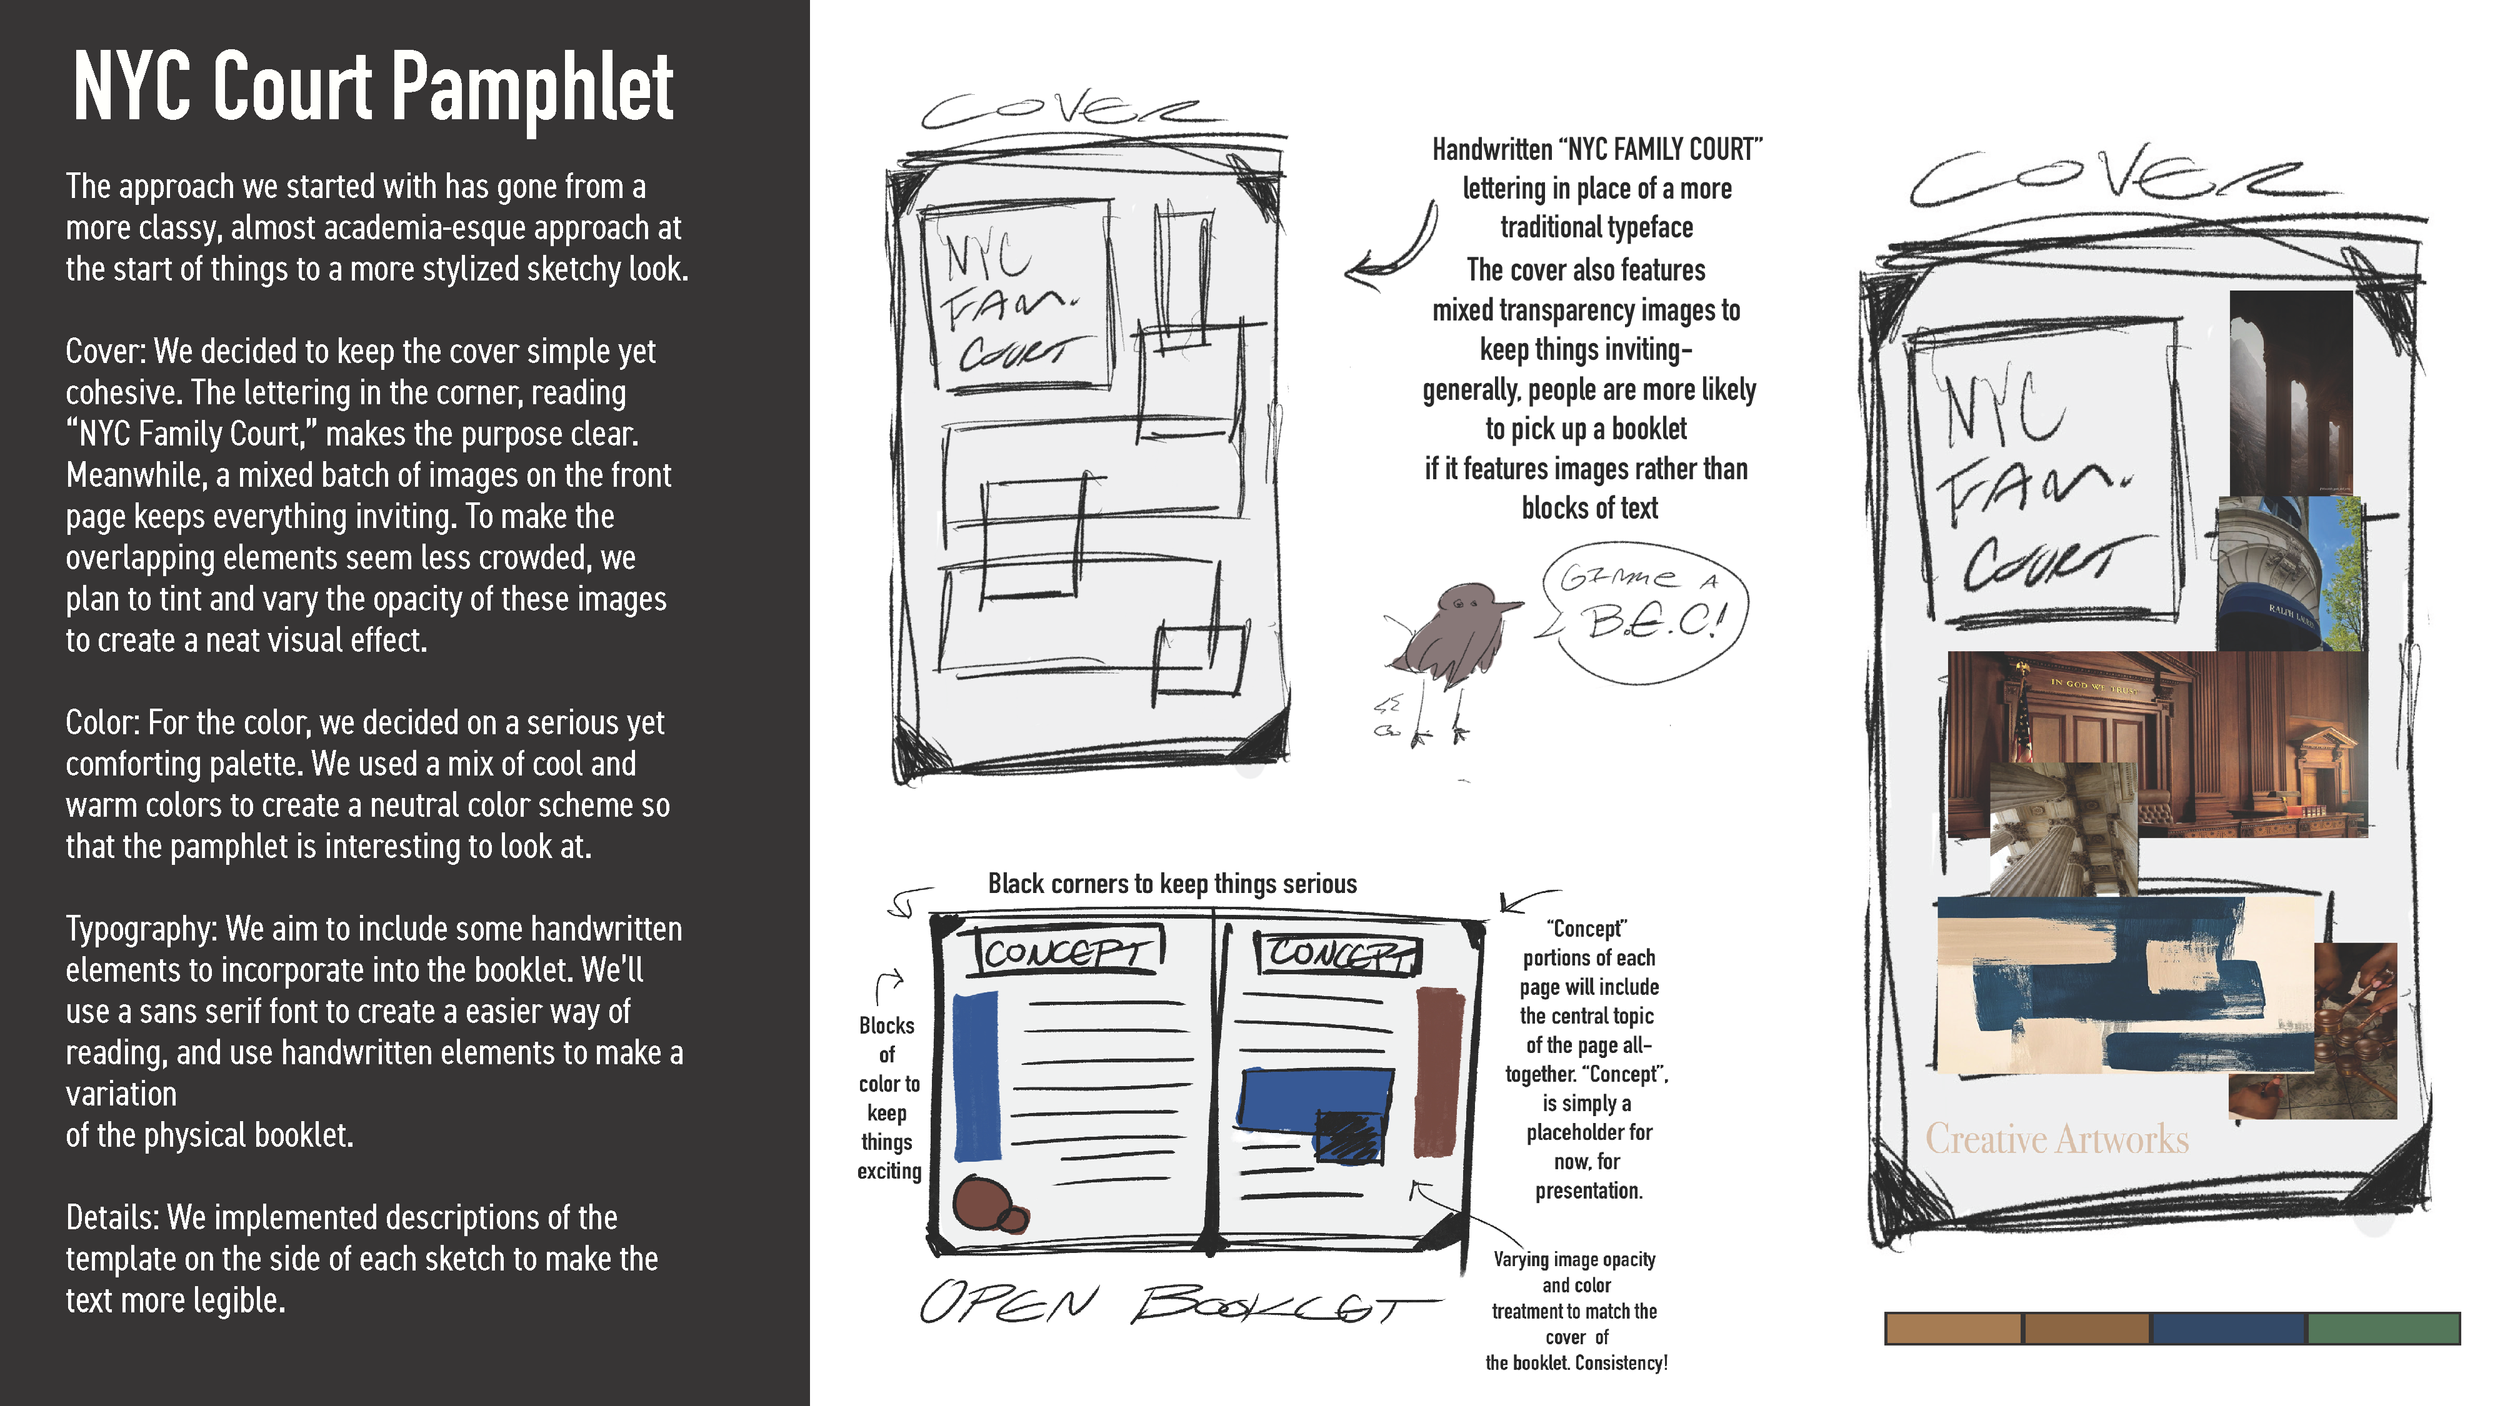 NYC Court Pamphlet
The approach we started with has gone from a
more classy, almost academia-esque approach at
the start of things to a more stylized sketchy look.
Cover: We decided to keep the cover simple yet
cohesive. The lettering in the corner, reading
“NYC Family Court,” makes the purpose clear.
Meanwhile, a mixed batch of images on the front
page keeps everything inviting. To make the
overlapping elements seem less crowded, we
plan to tint and vary the opacity of these images
to create a neat visual effect.
Color: For the color, we decided on a serious yet
comforting palette. We used a mix of cool and
warm colors to create a neutral color scheme so
that the pamphlet is interesting to look at.
Typography: We aim to include some handwritten
elements to incorporate into the booklet. We’ll
use a sans serif font to create a easier way of
reading, and use handwritten elements to make a
variation
of the physical booklet.
Details: We implemented descriptions of the
template on the side of each sketch to make the
text more legible.
COVER
NYC
FAM.
COURT
Handwritten “NYC FAMILY COURT”
lettering in place of a more
traditional typeface
The cover also features
mixed transparency images to
keep things inviting-
generally, people are more likely
to pick up a booklet
if it features images rather than
blocks of text
GIMME A
B.E.C!
Black corners to keep things serious
Blocks
of
color to
keep
things
exciting
CONCEPT
CONCEPT
“Concept”
portions of each
page will include
the central topic
of the page all-
together. “Concept”,
is simply a
placeholder for
now, for
presentation.
Varying image opacity
and color
treatment to match the
cover of
the booklet. Consistency!
OPEN BOOKLET
COVER
NYC
FAM.
COURT
RALPH LAUREN
IN GOD WE TRUST
Creative Artworks